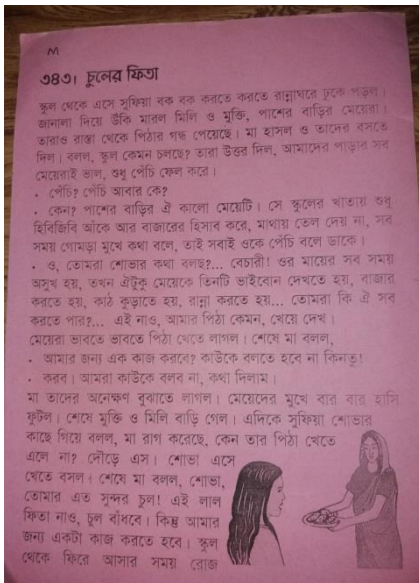 M
৩৪৩। চুলের ফিতা
স্কুল থেকে এসে সুফিয়া বক বক করতে করতে রান্নাঘরে ঢুকে পড়ল।
জানালা দিয়ে উঁকি মারল মিলি ও মুক্তি, পাশের বাড়ির মেয়েরা।
তারাও রাস্তা থেকে পিঠার গন্ধ পেয়েছে। মা হাসল ও তাদের বসতে
দিল। বলল, স্কুল কেমন চলছে? তারা উত্তর দিল, আমাদের পাড়ার সব
মেয়েরাই ভাল, শুধু পেঁচি ফেল করে।
· পেঁচি? পেঁচি আবার কে?
· কেন? পাশের বাড়ির ঐ কালো মেয়েটি। সে স্কুলের খাতায় শুধু
হিবিজিবি আঁকে আর বাজারের হিসাব করে, মাথায় তেল দেয় না, সব
সময় গোমড়া মুখে কথা বলে, তাই সবাই ওকে পেঁচি বলে ডাকে।
· ও, তোমরা শোভার কথা বলছ?... বেচারী! ওর মায়ের সব সময়
অসুখ হয়, তখন ঐটুকু মেয়েকে তিনটি ভাইবোন দেখতে হয়, বাজার
করতে হয়, কাঠ কুড়াতে হয়, রান্না করতে হয়... তোমরা কি ঐ সব
করতে পার?... এই নাও, আমার পিঠা কেমন, খেয়ে দেখ।
মেয়েরা ভাবতে ভাবতে পিঠা খেতে লাগল। শেষে মা বলল,
· আমার জন্য এক কাজ করবে? কাউকে বলতে হবে না কিনতু!
· করব। আমরা কাউকে বলব না, কথা দিলাম।
মা তাদের অনেক্ষণ বুঝাতে লাগল। মেয়েদের মুখে বার বার হাসি
ফুটল। শেষে মুক্তি ও মিলি বাড়ি গেল। এদিকে সুফিয়া শোভার
কাছে গিয়ে বলল, মা রাগ করেছে, কেন তার পিঠা খেতে
এলে না? দৌড়ে এস। শোভা এসে
খেতে বসল। শেষে মা বলল, শোভা,
তোমার এত সুন্দর চুল! এই লাল
ফিতা নাও, চুল বাঁধবে। কিন্তু আমার
জন্য একটা কাজ করতে হবে। স্কুল
থেকে ফিরে আসার সময় রোজ